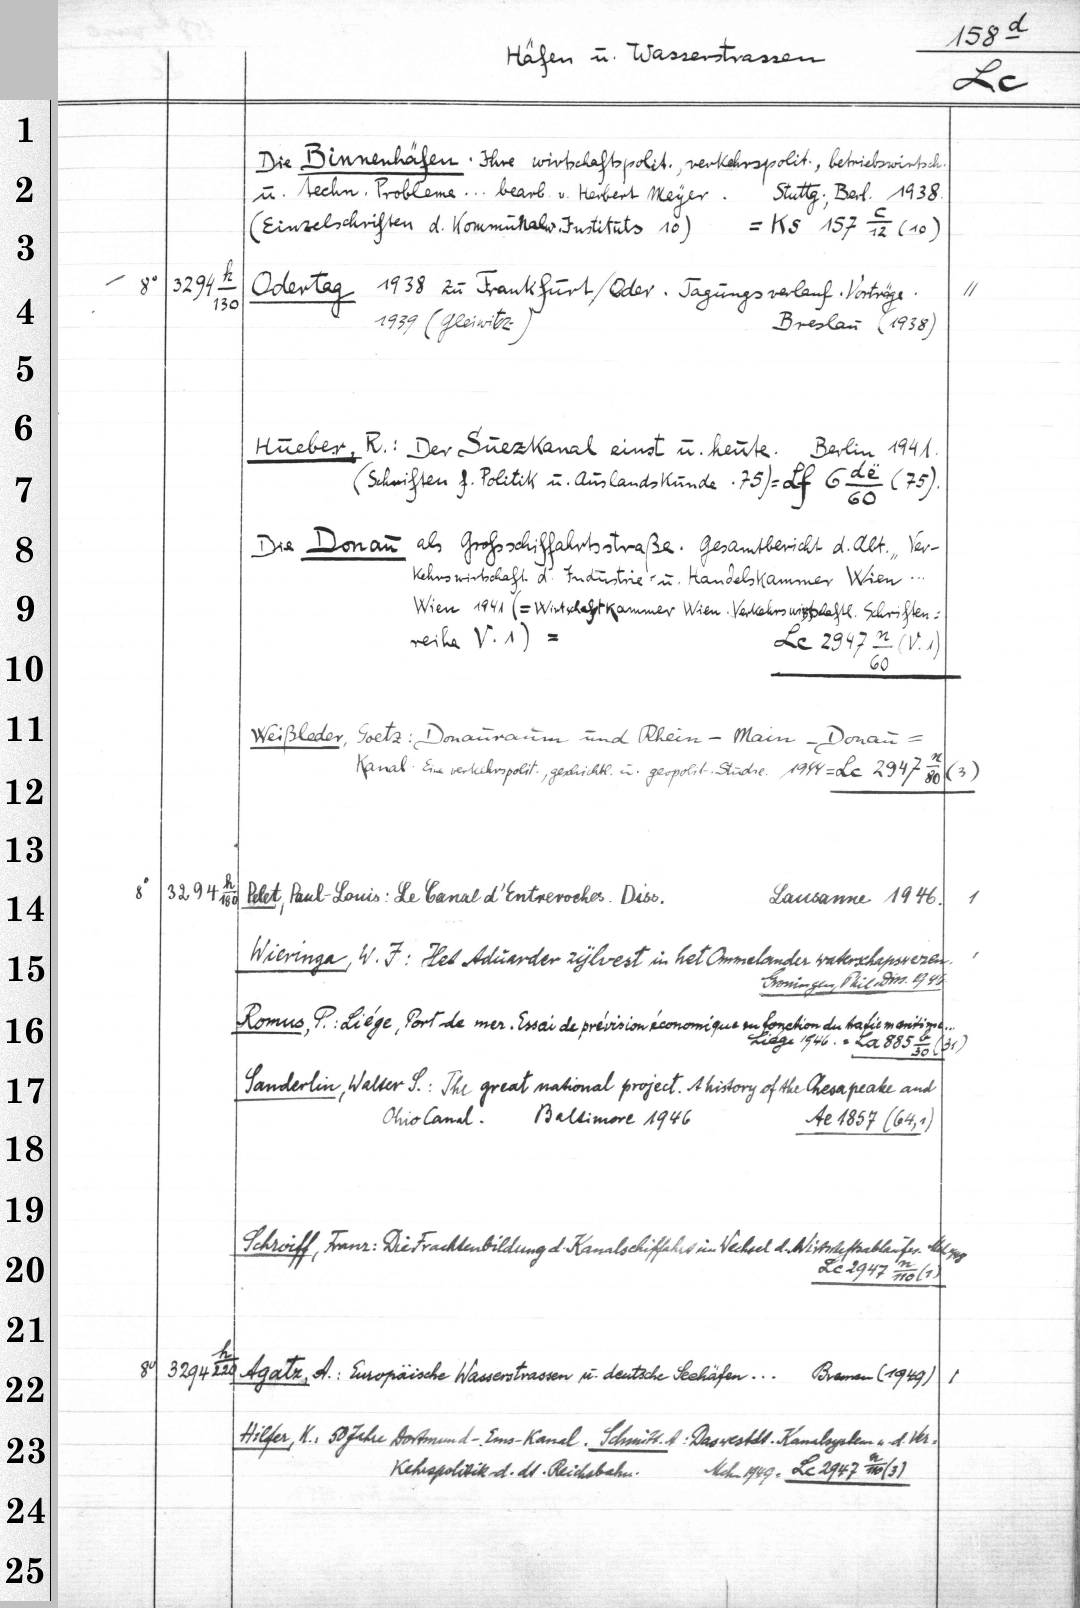 158 d
Häfen u. Wasserstrassen
Lc
1
Die Binnenhäfen. Ihre wirtschaftspolit., verkehrspolit., betriebswirtsch.
2
u. techn. Probleme ... bearb. v. Herbert Meyer. Stuttg., Berl. 1938.
(Einzelschriften d. Kommunalw. Instituts 10) = Ks 157 c/12 (10)
3
8° 3294 h/130 Odertag 1938 zu Frankfurt/Oder. Tagungsverlauf. Vorträge. "
4
1939 (Gleiwitz) Breslau (1938)
5
6
Hueber, R.: Der Suezkanal einst u. heute. Berlin 1941.
7
(Schriften f. Politik u. Auslandskunde. 75) = Lf 6 dë/60 (75).
8
Die Donau als Großschiffahrtsstraße. Gesamtbericht d. Abt. „Ver-
kehrswirtschaft d. Industrie- u. Handelskammer Wien ...
9
Wien 1941 (= Wirtschaftkammer Wien. Verkehrswirtschaftl. Schriften=
reihe V. 1) = Lc 2947 n/60 (V. 1)
10
11
Weißleder, Goetz: Donauraum und Rhein - Main - Donau =
Kanal. Eine verkehrspolit., geschichtl. u. geopolit. Studie. 1944 = Lc 2947 n/80 (3)
12
13
8° 3294 h/180 Pelet, Paul-Louis: Le Canal d'Entreroches. Diss. Lausanne 1946. 1
14
Wieringa, W. F: Het Aduarder zijlvest in het Ommelander waterschapswezen.
15
Groningen, Phil. Diss. 1946
Romus, P.: Liége, Port de mer. Essai de prévision économique en fonction du trafic maritime...
16
Liége 1946. = La 885 b/30 (31)
17
Sanderlin, Walter S.: The great national project. A history of the Chesapeake and
Ohio Canal. Baltimore 1946 Ae 1857 (64,1)
18
19
Schroiff, Franz: Die Frachtenbildung d. Kanalschiffahrt im Wechsel d. Wirtschaftsablaufes.
20
Lc 2947 n/110 (1)
21
8° 3294 h/220 Agatz, A.: Europäische Wasserstrassen u. deutsche Seehäfen ... Bremen (1949) 1
22
Hilfer, K.: 50 Jahre Dortmund-Ems-Kanal. Schmitt. A: Das westdt. Kanalsystem u. d. Ver=
23
kehrspolitik d. dt. Reichsbahn. 1949. Lc 2947 n/110 (3)
24
25